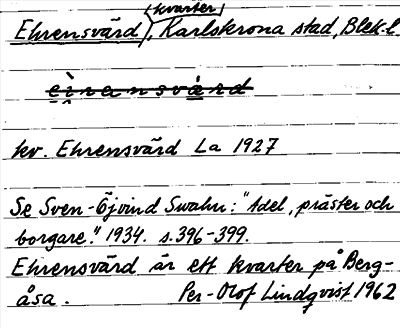 (kvarter)
Ehrensvärd, Karlskrona stad, Blek. l
eȷ̀ransvä̀rd
kv. Ehrensvärd La 1927
Se Sven-Öjvind Swahn: "Adel, präster och
borgare." 1934. s.396-399.
Ehrensvärd är ett kvarter på Berg-
åsa. Per-Olof Lindqvist 1962